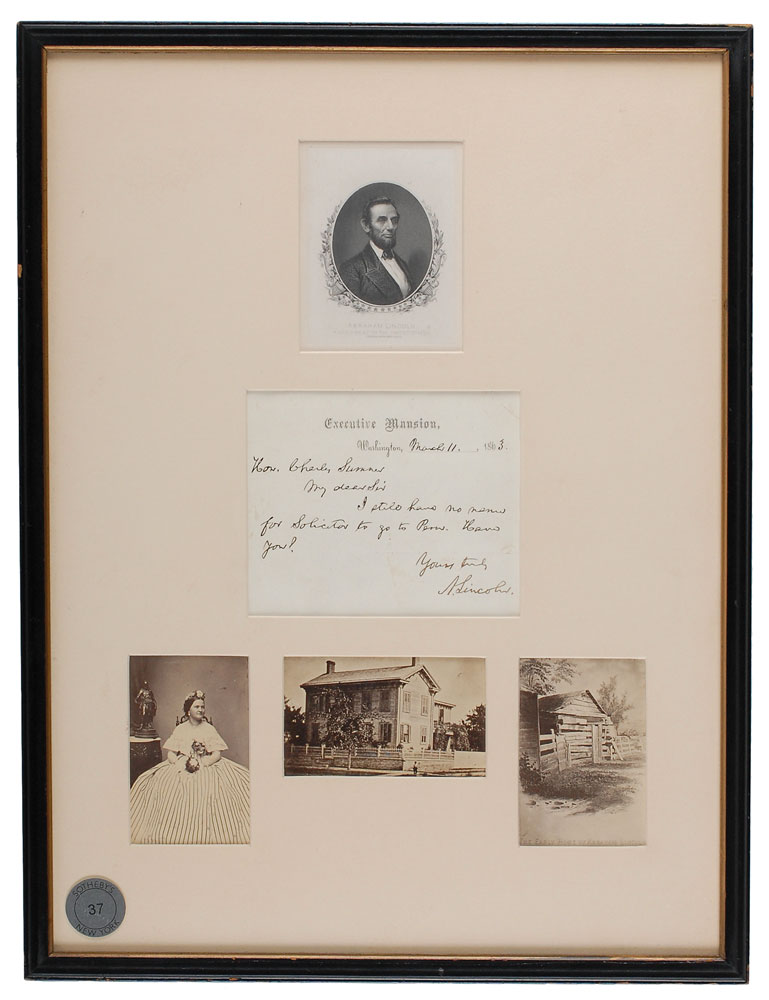 ABRAHAM LINCOLN
Executive Mansion,
Washington, March 11. , 1863.
Hon. Charles Sumner
My dear Sir
I still have no name
for Solicitor to go to Peru. Have
you?
Yours truly
A. Lincoln.
EARLY HOME OF ABRAHAM
SOTHEBY'S
37
NEW YORK